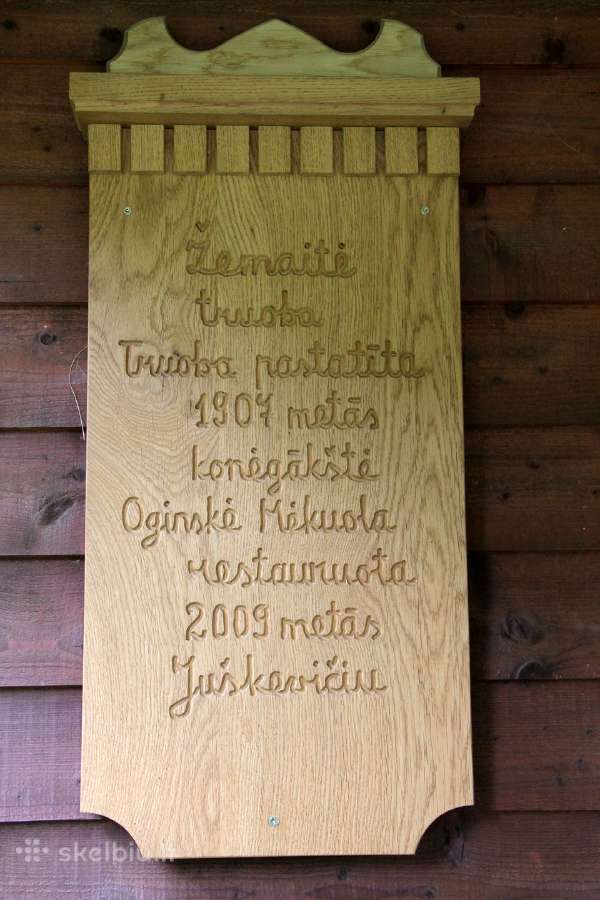 Žemaitė
truoba
Truoba pastatīta
1907 metās
konėgākštė
Oginskė Mėkuola
restauruota
2009 metās
Juškevičiu
skelbiu.lt